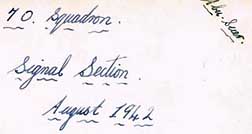 70. Squadron.
Abu-Sueir
Signal Section.
August 1942